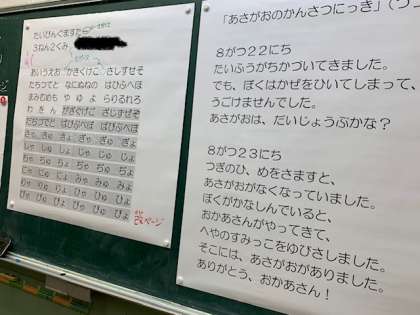 たいぴんぐますたー
3ねん2くみ
あいうえお かきくけこ さしすせそ
たちつてと なにぬねの はひふへほ
まみむめも やゆよ らりるれろ
わ を ん がぎぐげご ざじずぜぞ
だぢづでど ばびぶべぼ ぱぴぷぺぽ
きゃ きゅ きょ ぎゃ ぎゅ ぎょ
しゃ しゅ しょ じゃ じゅ じょ
ちゃ ちゅ ちょ ぢゃ ぢゅ ぢょ
にゃ にゅ にょ みゃ みゅ みょ
ひゃ ひゅ ひょ
びゃ びゅ びょ ぴゃ ぴゅ ぴょ
「あさがおのかんさつにっき」(つ
8がつ22にち
たいふうがちかづいてきました。
でも、ぼくはかぜをひいてしまって、
うごけませんでした。
あさがおは、だいじょうぶかな?
8がつ23にち
つぎのひ、めをさますと、
あさがおがなくなっていました。
ぼくがかなしんでいると、
おかあさんがやってきて、
へやのすみっこをゆびさしました。
そこには、あさがおがありました。
ありがとう、おかあさん!